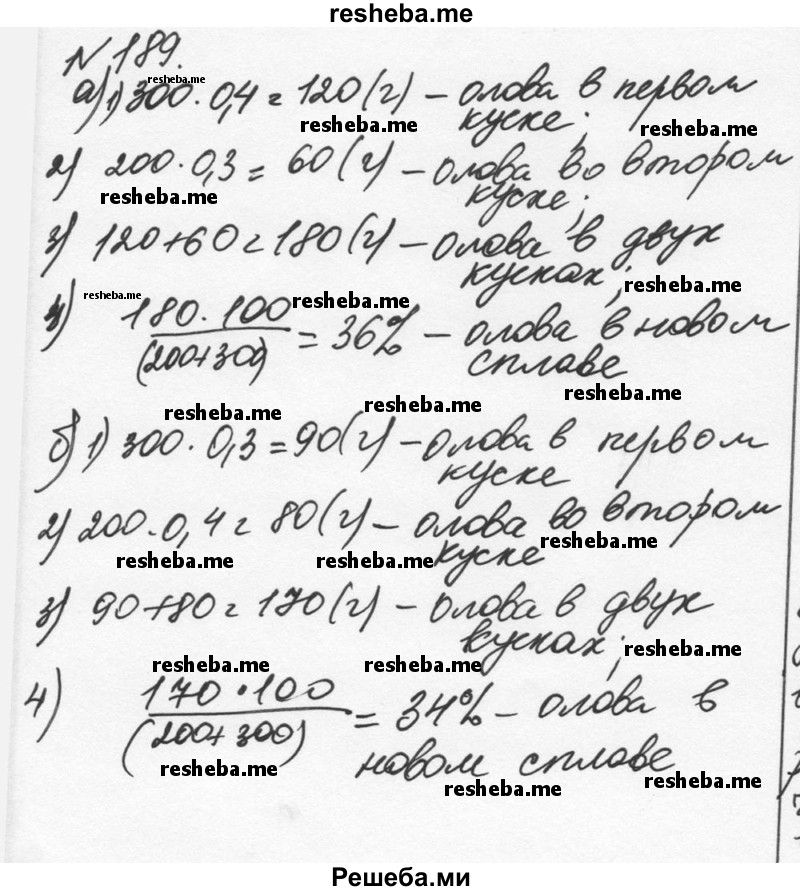 resheba.me
№ 189.
resheba.me
а) 1) 300 · 0,4 = 120 (г) – олова в первом
resheba.me куске; resheba.me
2) 200 · 0,3 = 60 (г) – олова во втором
resheba.me куске;
3) 120 + 60 = 180 (г) – олова в двух
кусках; resheba.me
resheba.me resheba.me
4) 180 · 100 / (200+300) = 36% – олова в новом
сплаве
resheba.me
resheba.me resheba.me
б) 1) 300 · 0,3 = 90 (г) – олова в первом
куске
2) 200 · 0,4 = 80 (г) – олова во втором
resheba.me resheba.me куске resheba.me
3) 90 + 80 = 170 (г) – олова в двух
кусках; resheba.me
resheba.me resheba.me
4) 170 · 100 / (200+300) = 34% – олова в
resheba.me новом сплаве
resheba.me resheba.me
Решеба.ми